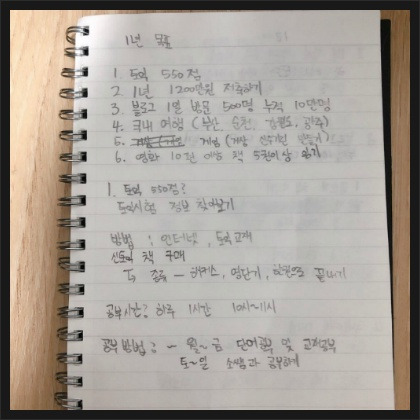 1년 목표
1. 토익 550점
2. 1년 1200만원 저축하기
3. 블로그 1일 방문 500명 누적 10만명
4. 국내 여행 (부산, 순천, 강원도, 광주)
5. 게임 (게임
6. 영화 10편 이상 책 5권이상 읽기
1. 토익 550점?
토익시험 정보 찾아보기
방법 : 인터넷, 토익교재
신토익 책 구매
↳ 종류 – 해커스, 영단기, 한권으로 끝내기
공부시간? 하루 1시간 10시~11시
공부방법? – 월~금 단어공부 및 교재공부
토~일 쏘쌤과 공부하기